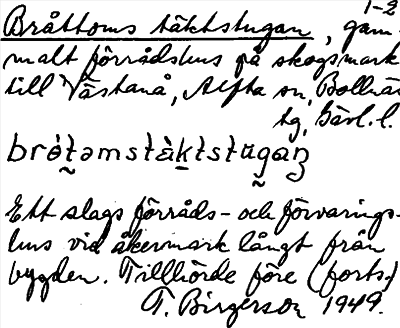 1-2
Bråttoms täktstugan, gam-
malt förrådshus på skogsmark
till Västanå, Alfta sn, Bollnäs
tg, Gävl. l.
brȯt̰əmstàk̠tstɯg̰aɳ
Ett slags förråds- och förvarings-
hus vid åkermark långt från
bygden. Tillhörde före (forts.)
T. Birgerson 1949.